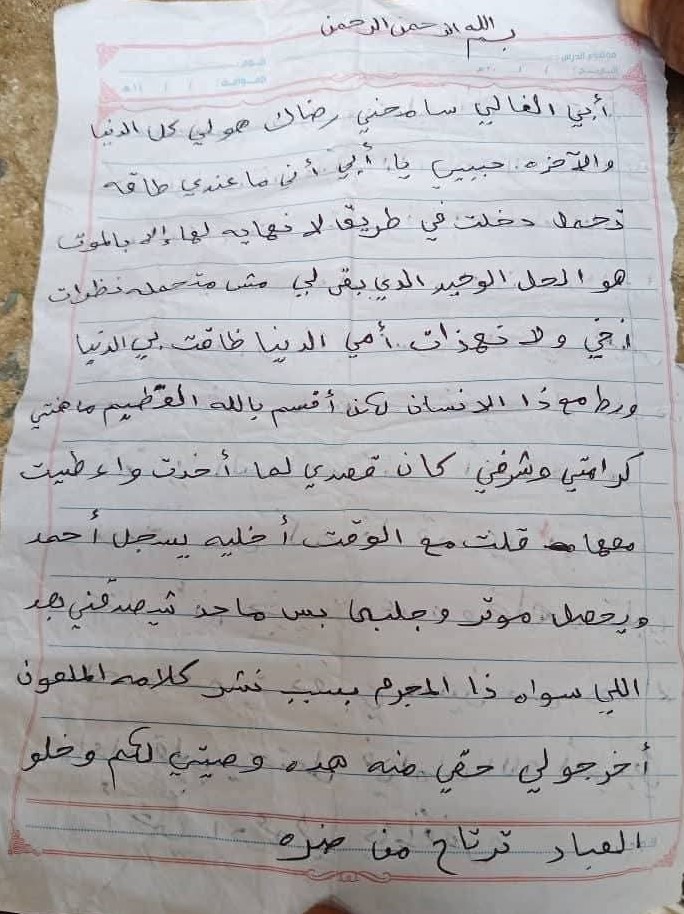 بسم الله الرحمن الرحمن
موضوع الدرس:
أبي الغالي سامحني رضاك هو لي كل الدنيا
والآخره حبيبي يا أبي أني ما عندي طاقه
تحمل دخلت في طريق لا نهايه لها إلا بالموت
هو الحل الوحيد الدي بقى لي مش متحمله نظرات
أخي ولا نهدات أمي الدنيا ظاقت بي الدنيا
مع ذا الانسان لكن أقسم بالله العظيم ما هنتي
كرامتي وشرفي كان قصدي لما أخدت واعطيت
معها قلت مع الوقت أخليه يسجل أحمد
ويحصل موتر وجلبها بس ماحد شيصدقني بعد
اللي سواه ذا المجرم بسبب نشر كلامه الملعون
أخرجولي حقي منه هده وصيتي لكم وخلو
العباد ترتاح من ضره